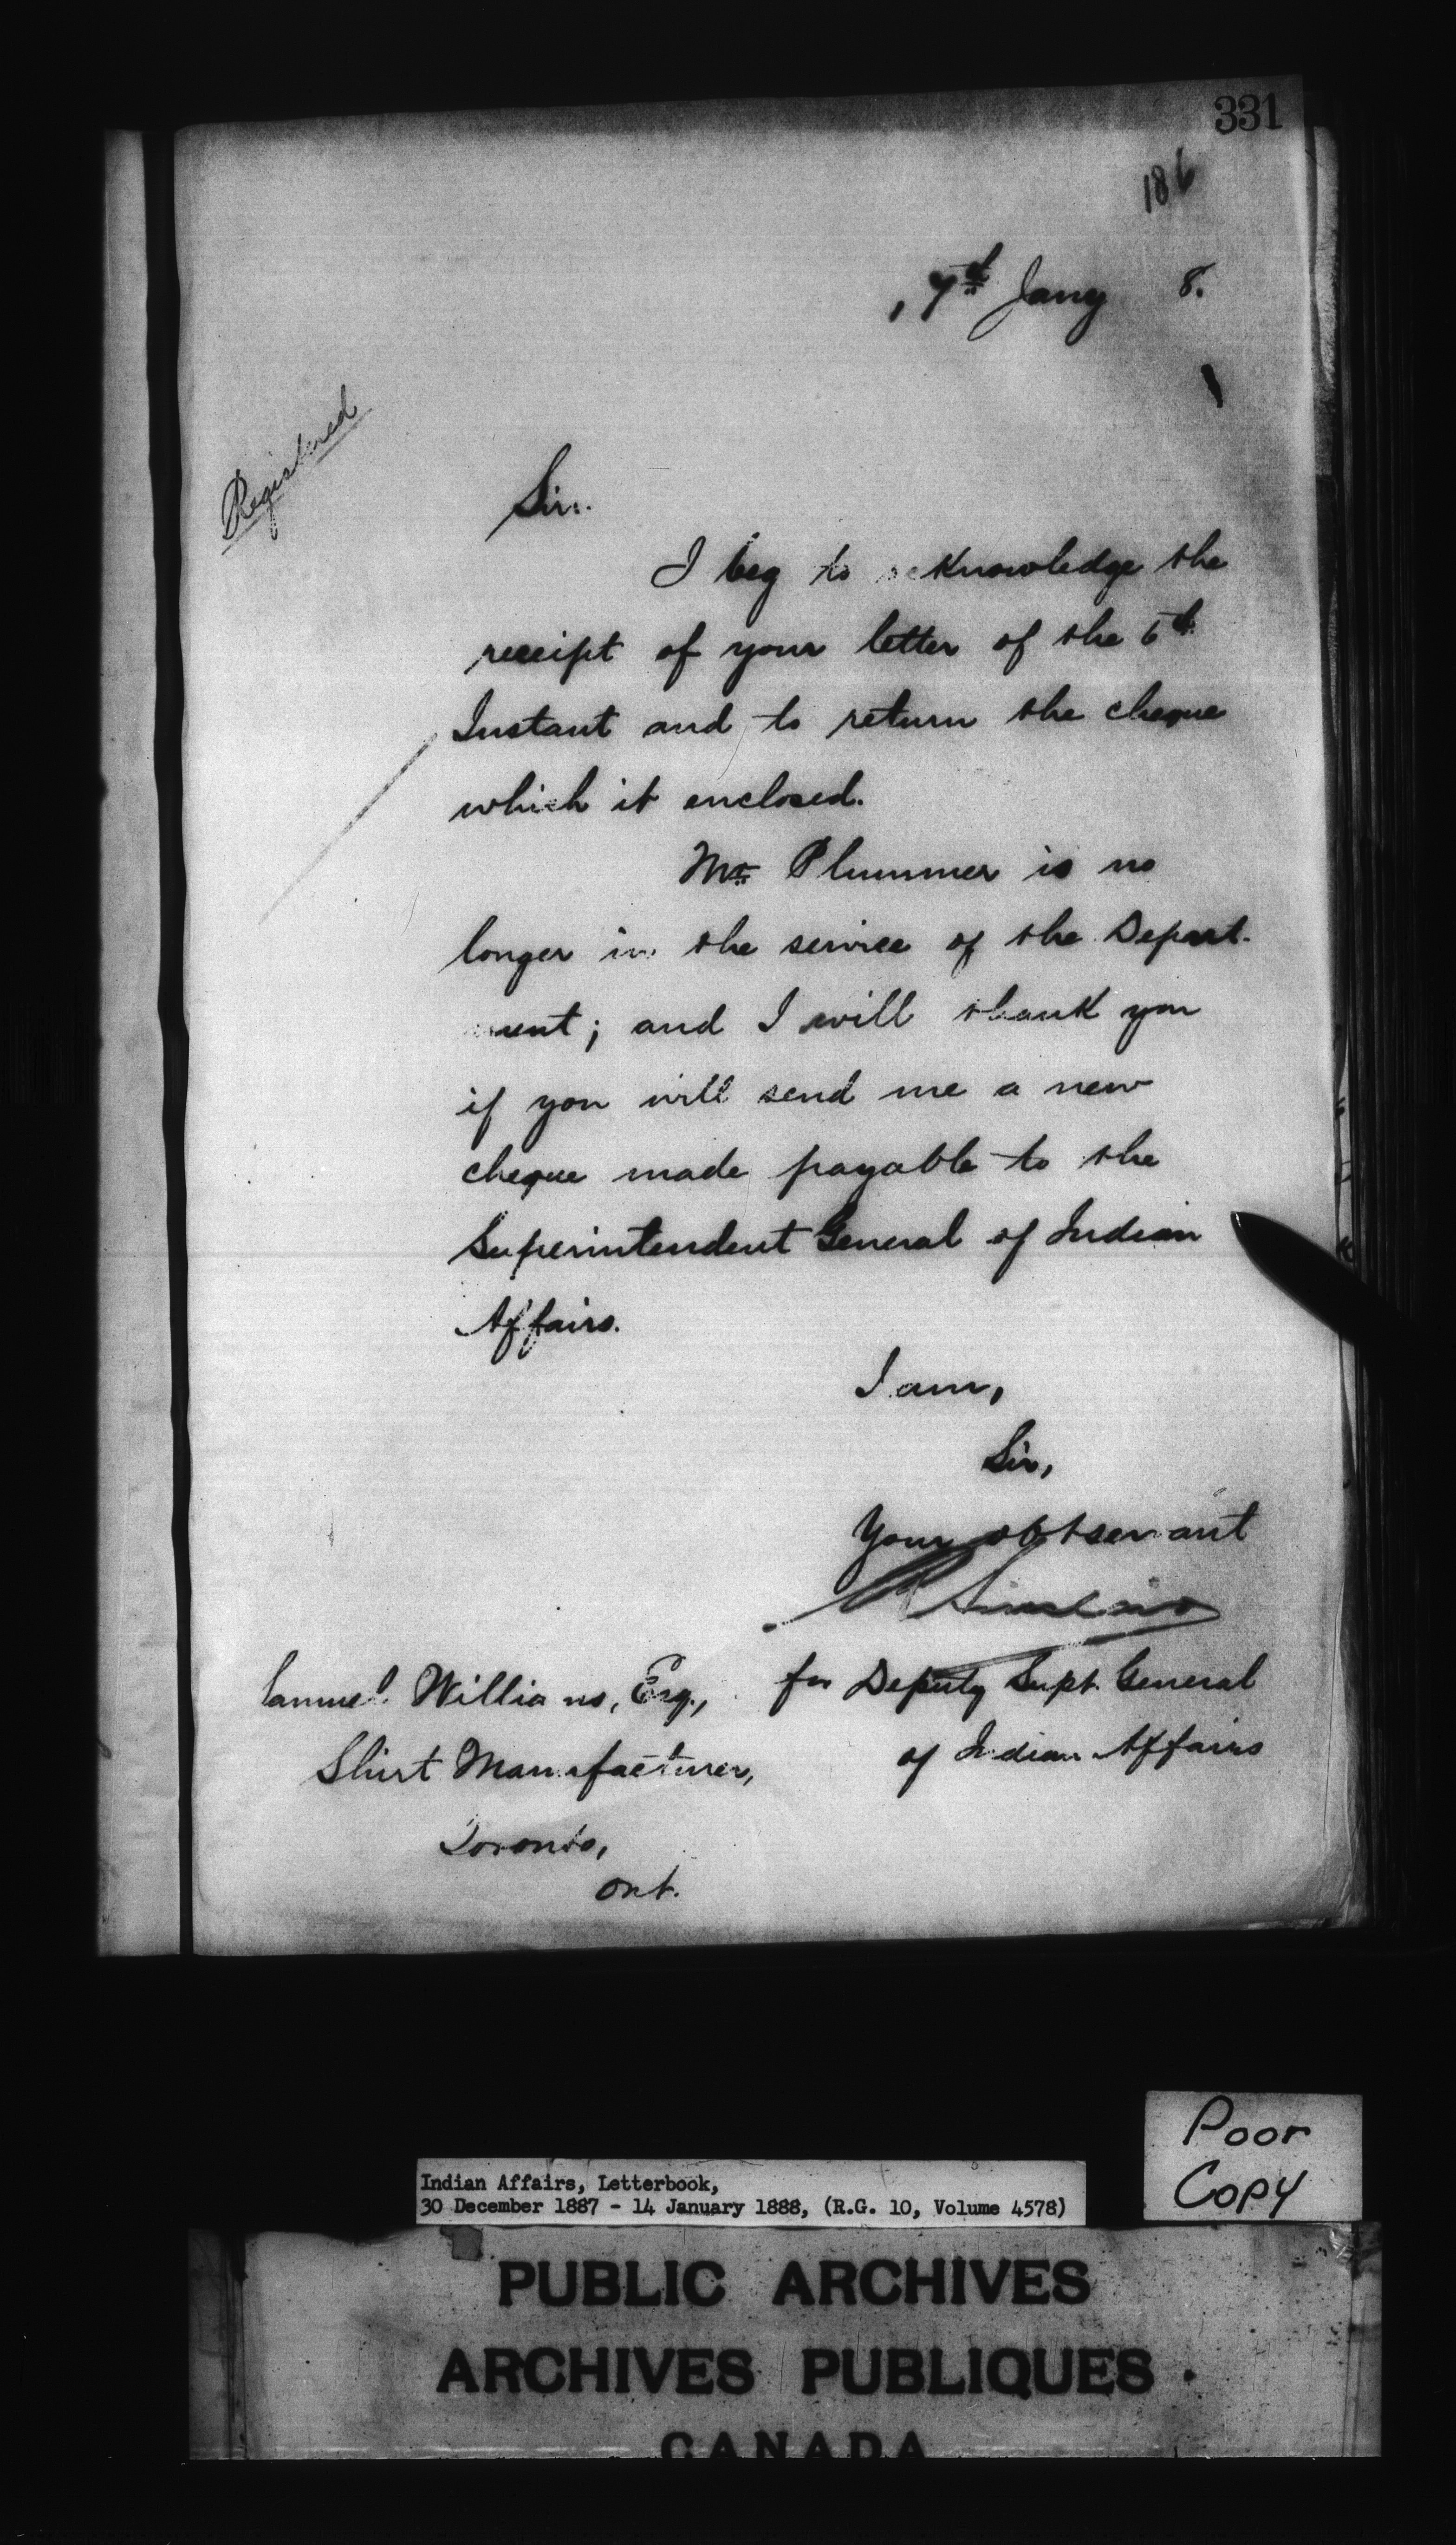 331
186
, 7th Jany 8.
Registered
Sir.
I beg to acknowledge the
receipt of your letter of the 6th
Instant and to return the cheque
which it enclosed.
Mr Plummer is no
longer in the service of the Depart-
ment; and I will thank you
if you will send me a new
cheque made payable to the
Superintendent General of Indian
Affairs.
I am,
Sir,
Your obt servant
for Deputy Supt. General
of Indian Affairs
Samuel Williams, Esq.,
Shirt Manufacturer,
Toronto,
Ont.
Poor
Copy
Indian Affairs, Letterbook,
30 December 1887 - 14 January 1888, (R.G. 10, Volume 4578)
PUBLIC ARCHIVES
ARCHIVES PUBLIQUES
CANADA